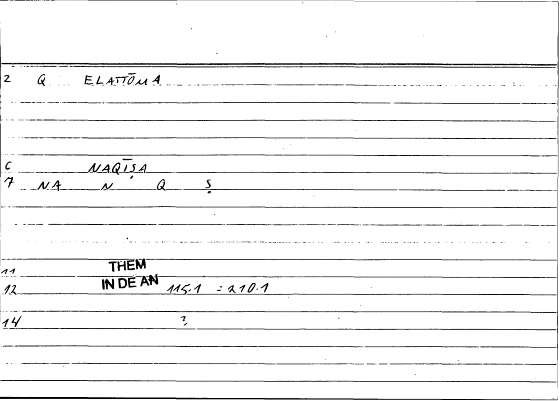 2 Q ELATTŌMA
C NAQĪṢA
7 NA N Q Ṣ
11 THEM
IN DE AN
12 115.1 = 210.1
14 ?